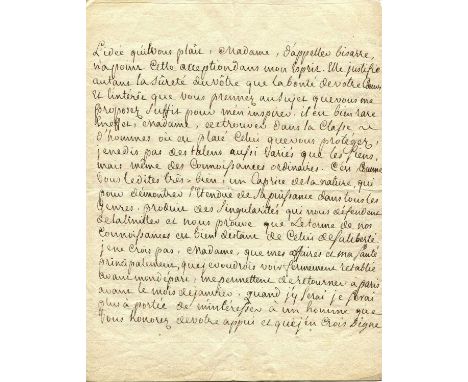 L'idée qu'il vous plait, Madame, d'appeller bisarre,
n'a point cette acception dans mon Esprit. Elle justifie
autant la sûreté du vôtre que la bonté de votre Coeur
et l'intérêt que vous prennez au sujet que vous me
proposez suffit pour m'en inspirer. il est bien rare
en effet, Madame, de trouver dans la Classe
d'hommes où est placé Celui que vous protegez,
je ne dis pas des talens aussi variés que les siens,
mais même des Connoissances ordinaires. C'est comme
vous le dites très-bien, un Caprice de la nature, qui
pour démontrer l'étendue de sa puissance dans tous les
Genres, produit des singularités qui nous défendent
de l'imiter et nous prouve que le terme de nos
Connoissances est bien distant de Celui de sa liberté.
je ne crois pas, Madame, que mes affaires et ma santé
principalement, que je voudrois voir fermement rétablie
avant mon départ, me permettent de retourner a paris
avant le mois de janvier. quand j'y serai je serai
plus a portée de m'intéresser à un homme que
vous honorez de votre appui et que j'en crois digne